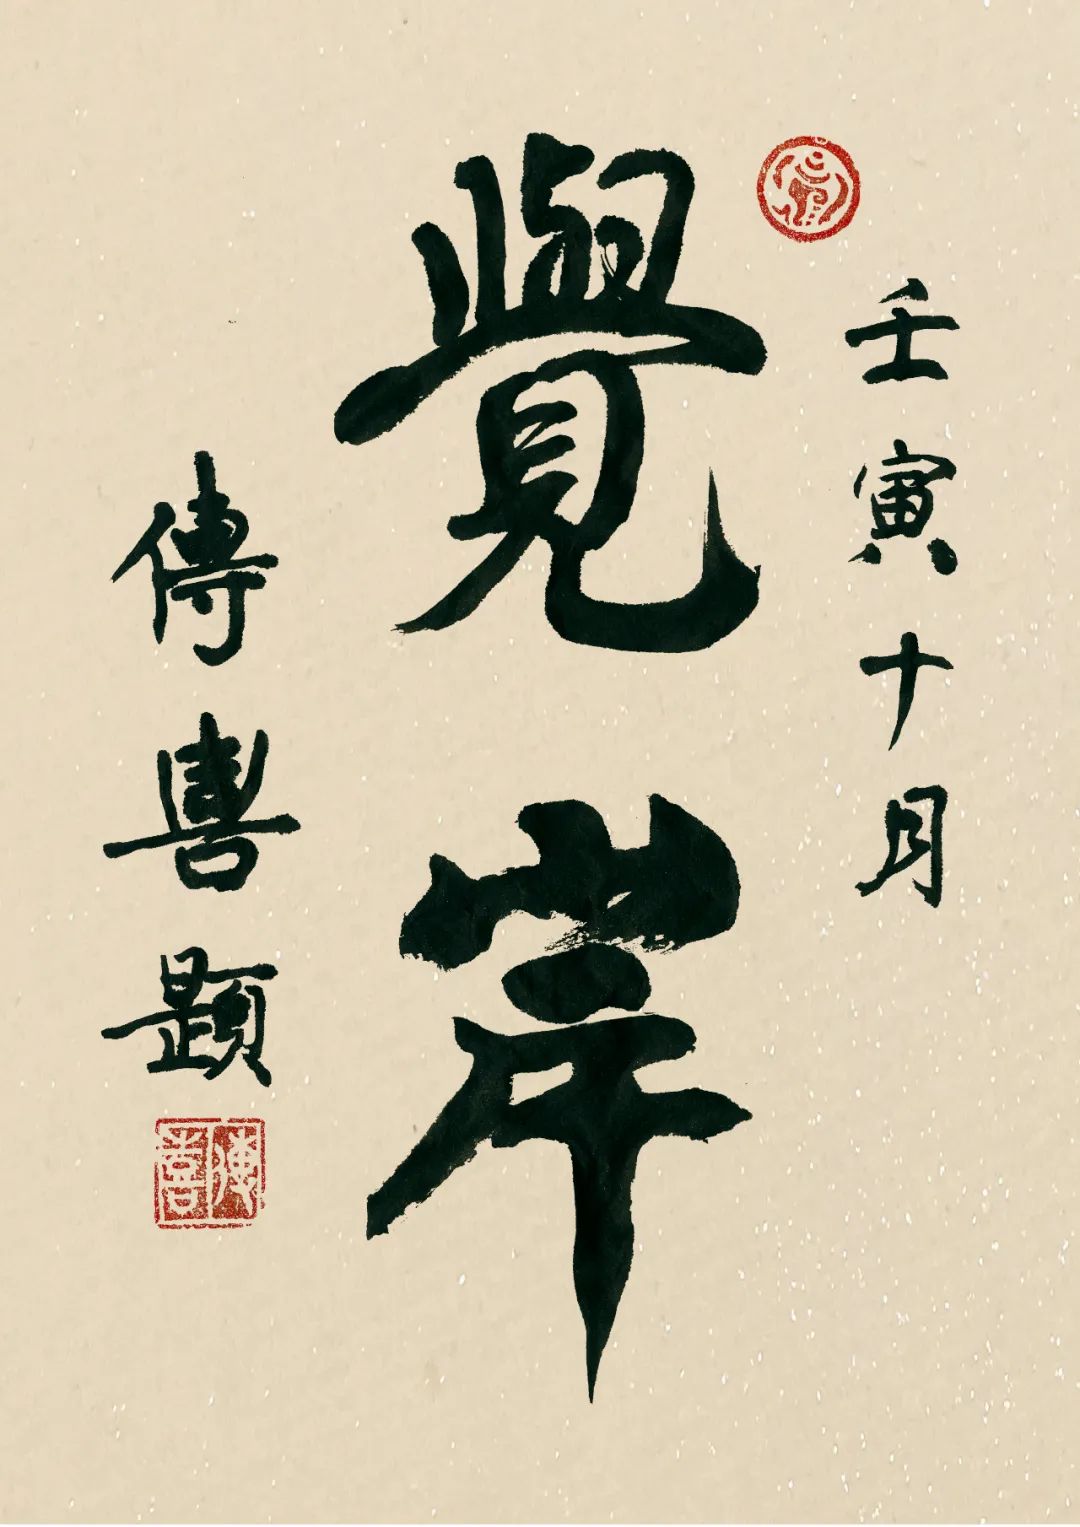 壬寅十月
覺岸
傳喜題
傳喜